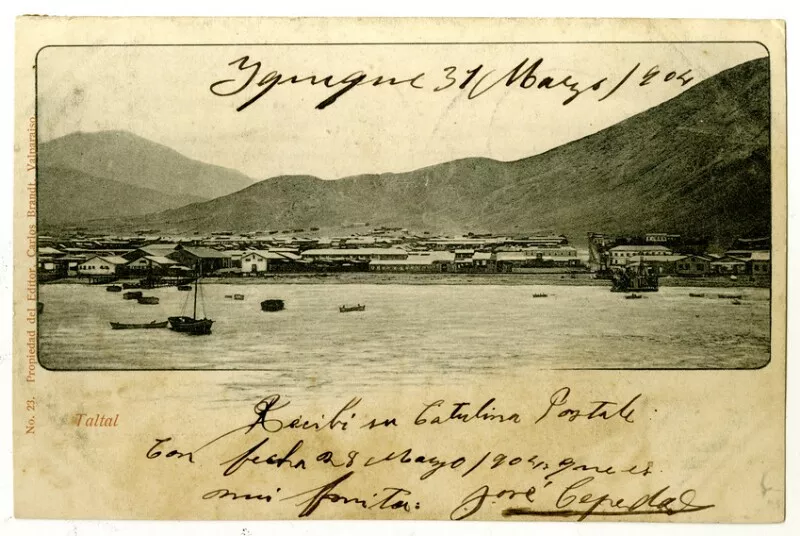 Yquique 31 Marzo/904
No. 23. Propiedad del Editor. Carlos Brandt, Valparaiso.
Taltal
Recibi su Catulina Postale
Con fecha 28 Marzo/904. que es
mui bonita: José Cepeda